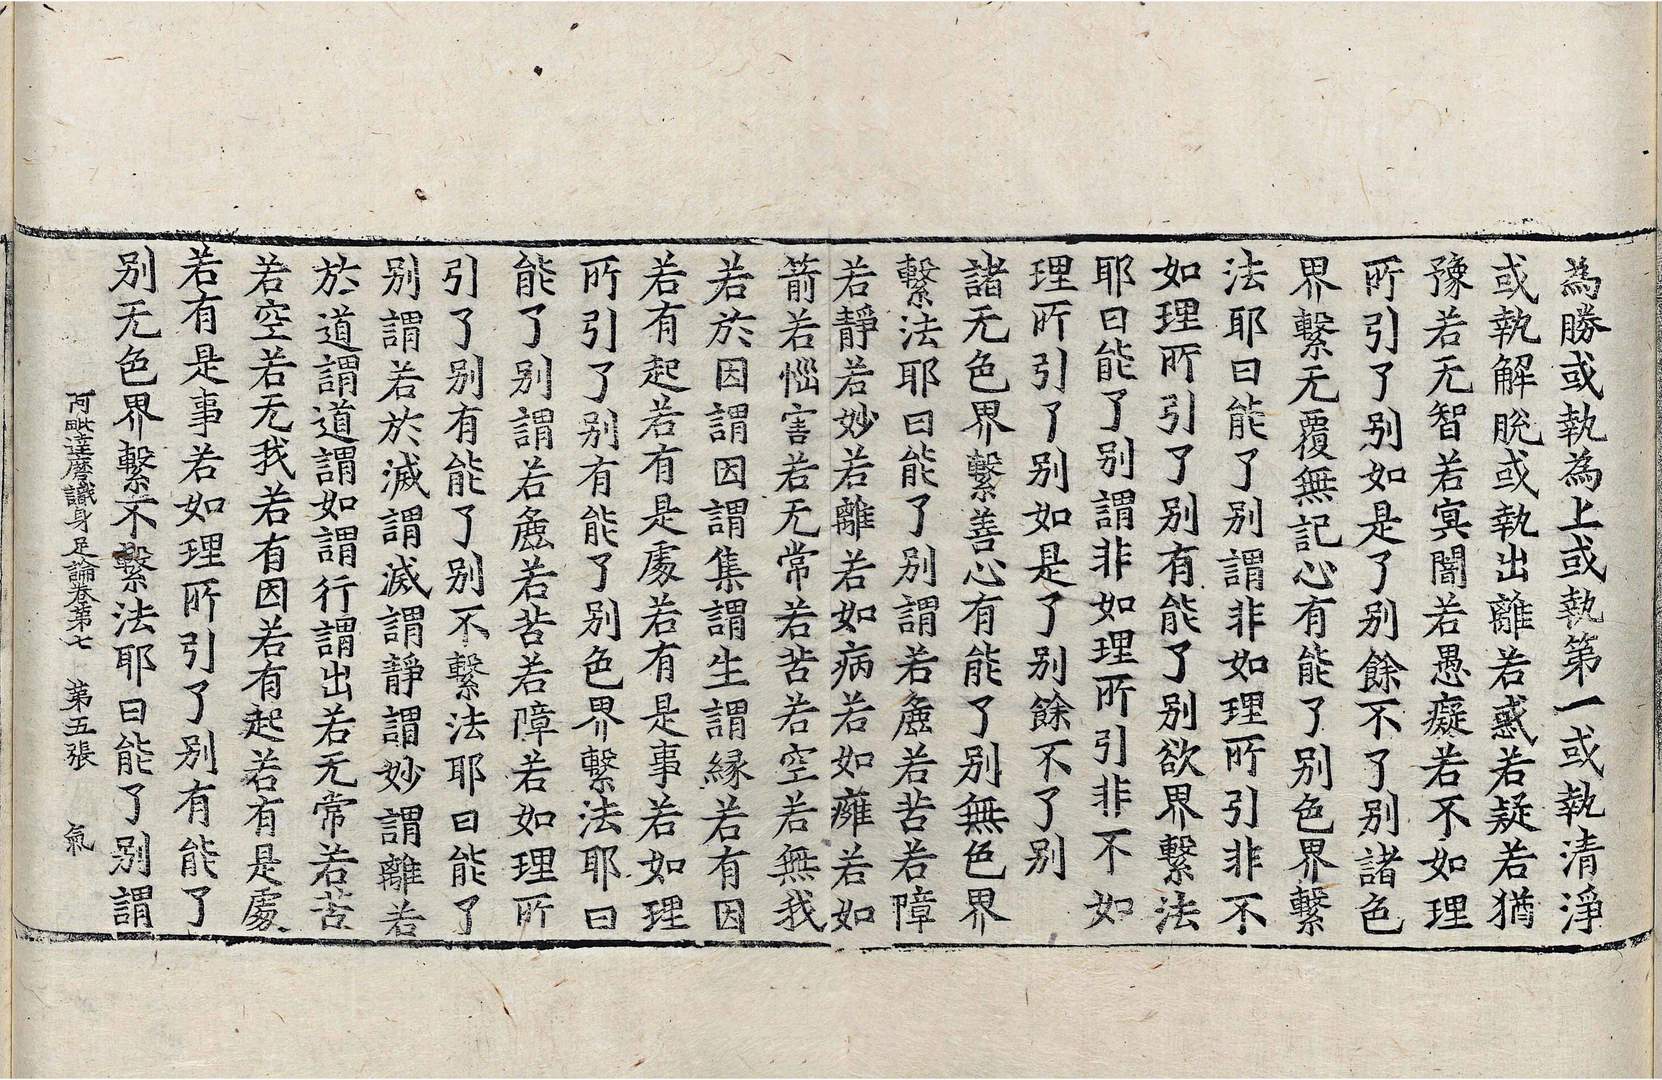 為勝或執為上或執第一或執清淨
或執解脫或執出離若惑若疑若猶
豫若无智若冥闇若愚癡若不如理
所引了別如是了別餘不了別諸色
界繫无覆無記心有能了別色界繫
法耶曰能了別謂非如理所引非不
如理所引了別有能了別欲界繫法
耶曰能了別謂非如理所引非不如
理所引了別如是了別餘不了別
諸无色界繫善心有能了別無色界
繫法耶曰能了別謂若麁若苦若障
若靜若妙若離若如病若如癰若如
箭若惱害若无常若苦若空若無我
若於因謂因謂集謂生謂緣若有因
若有起若有是處若有是事若如理
所引了別有能了別色界繫法耶曰
能了別謂若麁若苦若障若如理所
引了別有能了別不繫法耶曰能了
別謂若於滅謂滅謂靜謂妙謂離若
於道謂道謂如謂行謂出若无常若苦
若空若无我若有因若有起若有是處
若有是事若如理所引了別有能了
別无色界繫不繫法耶曰能了別謂
阿毗達磨識身足論卷第七 第五張 氣